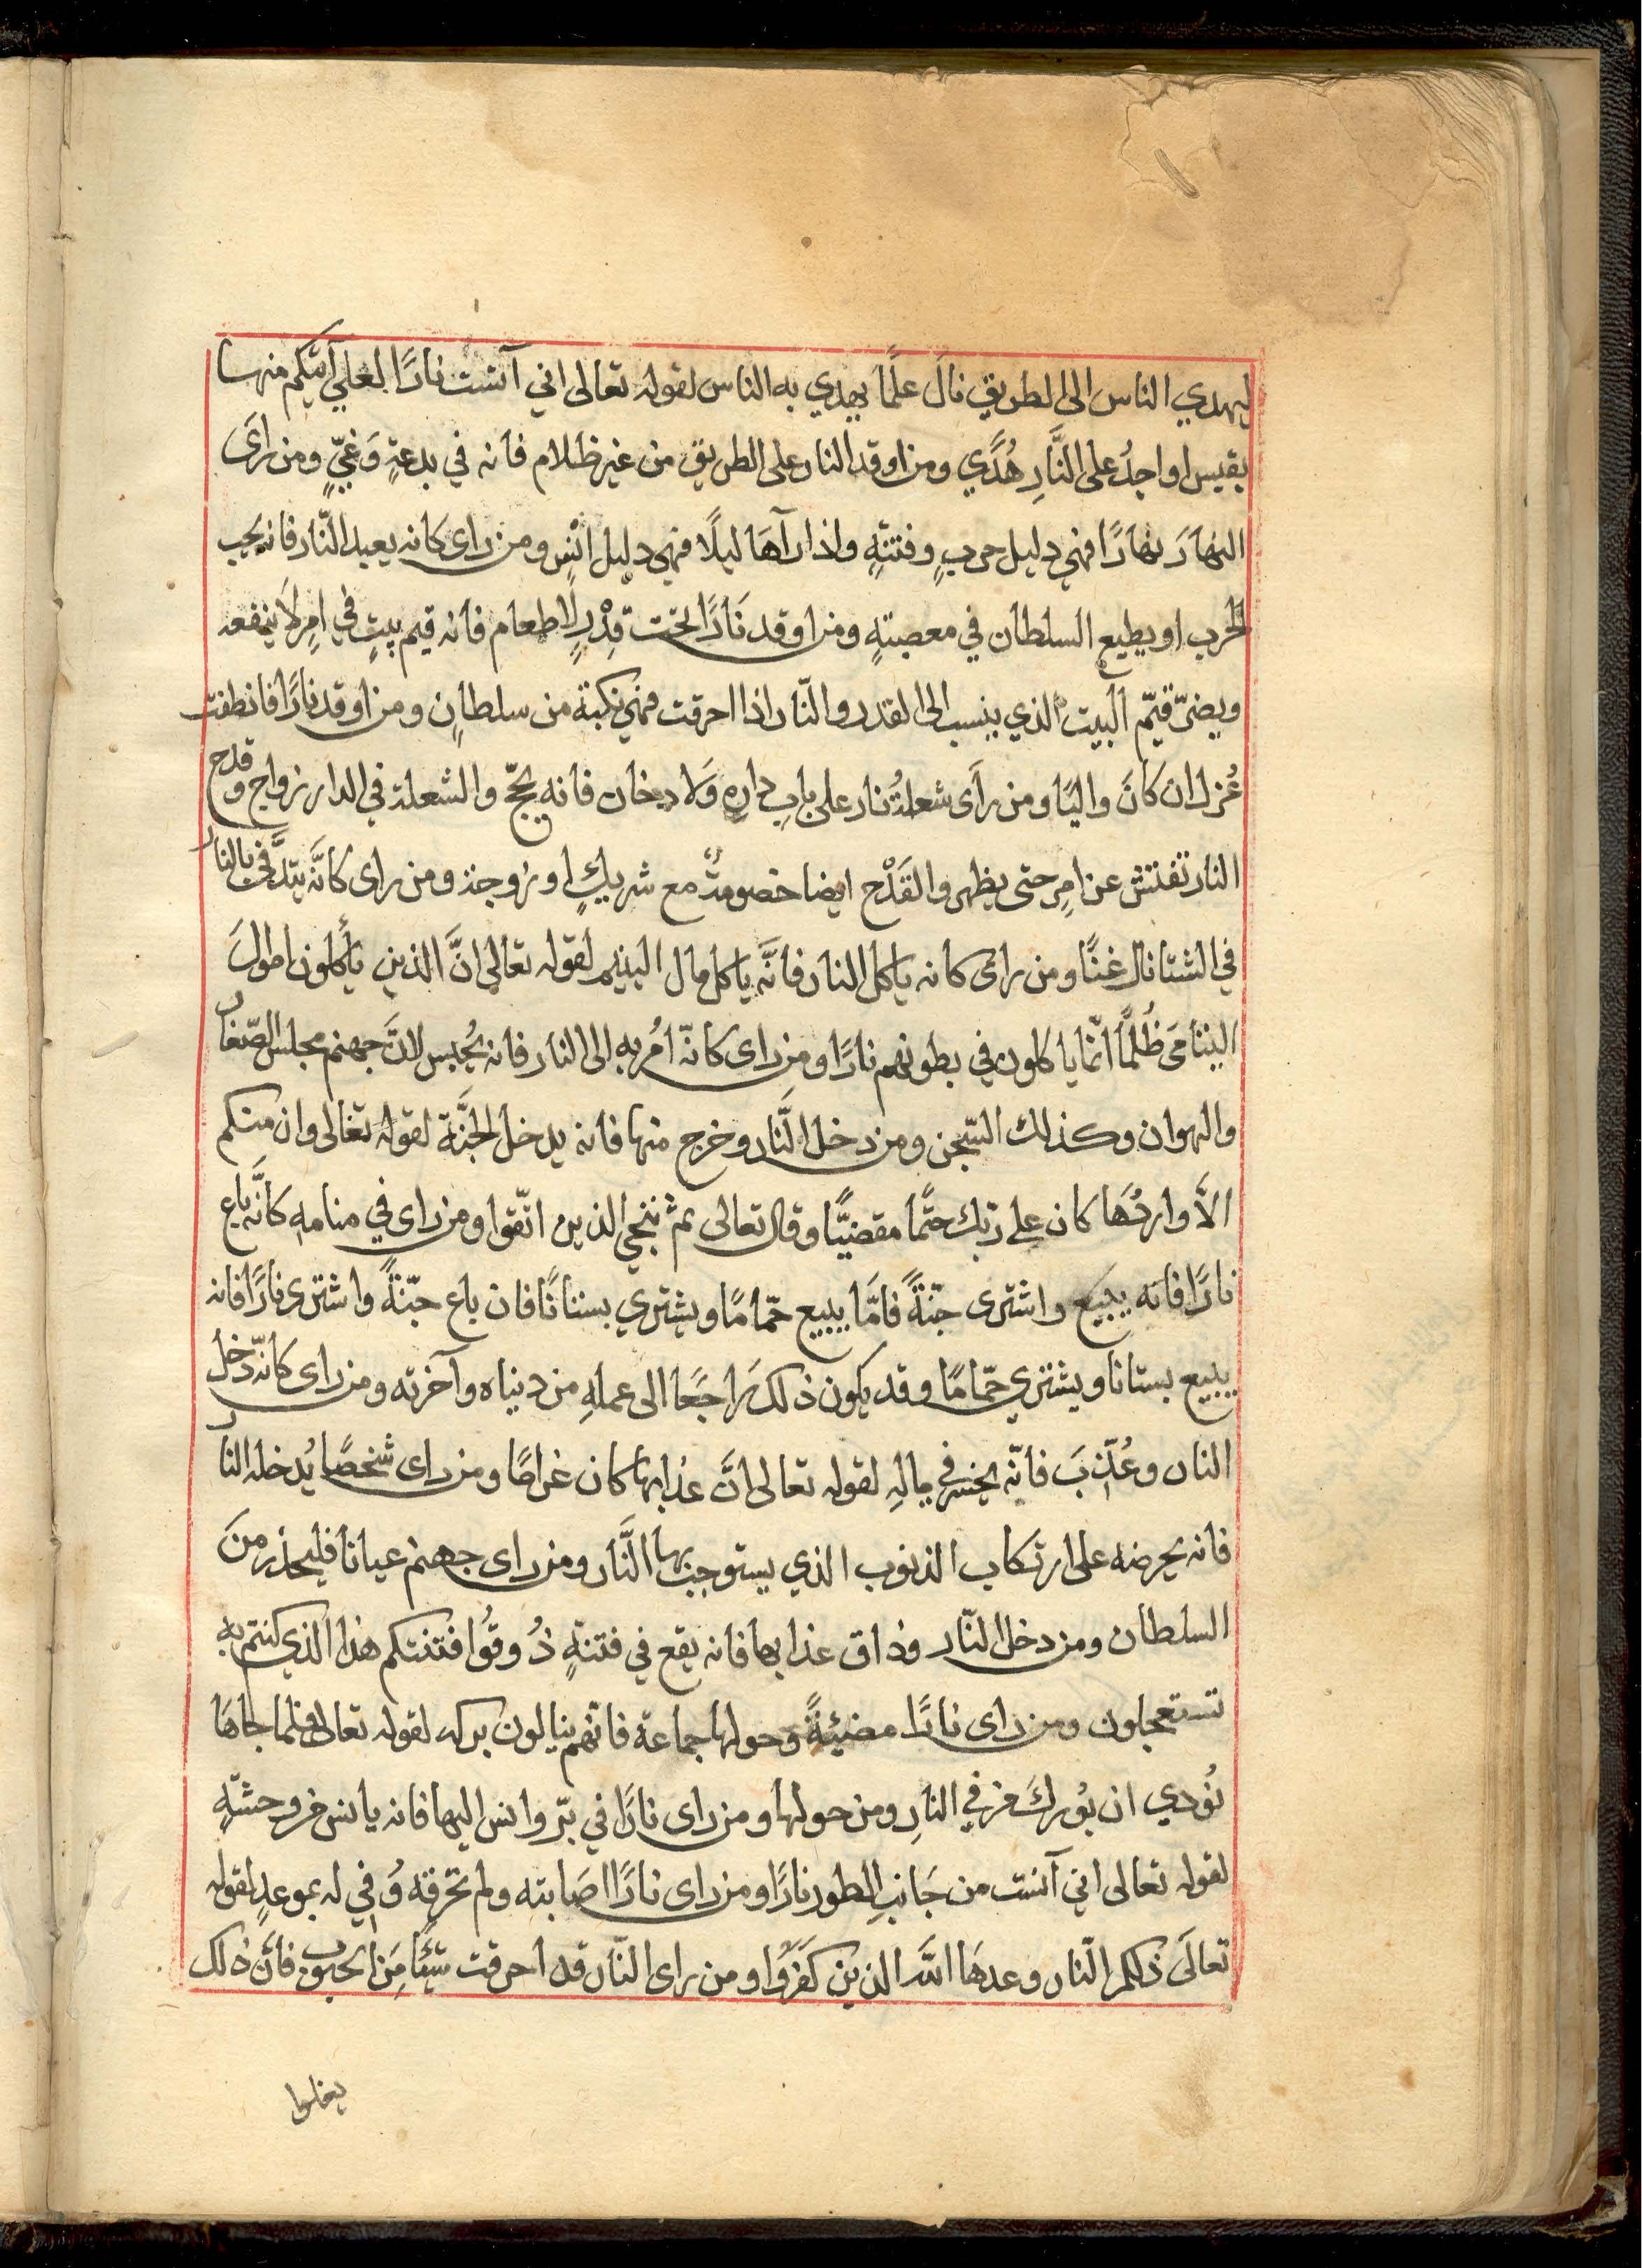 ليهدي الناس الى الطريق نال علمًا يهدي به الناس لقوله تعالى اني آنست نارًا لعلي آتيكم منها
بقبس او اجدُ على النَّارِ هُدًي ومن اوقد النار على الطريق من غير ظلام فانه في بدعةٍ وَغيٍّ ومن رأى
النهارَ نهارًا فهي دليل حربٍ وفتنةٍ واذا رآهَا ليلًا فهي دليل انْسٍ ومن راى كانه يعبد النّار فانه يحب
الحرب او يطيع السلطان في معصيتهٍ ومن اوقد نَارًا تحت قِدْرٍ لا طعام فانه قيم بيتٍ في امرٍ لَا ينفعه
ويضيّ قيّم البيت الذي ينسب الى القدر والنّار اذا احرقت فهي نكبة من سلطانٍ ومن اوقد نارًا فانطفت
عُزل ان كانَ واليًا ومن رأى شعلةُ نار على بابِ دارِه وَلا دخان فانه يحجّ والشعلة في الدار زواج وقدح
النار تفتش عن امرٍ حتى يظهر والقَدْح ايضا خصومةٌ مع شريكٍ او زوجة ومن راى كانَّه يتدَّفى بالنار
في الشتا نال غنًا ومن راى كانه ياكل النار فانَّه ياكل مال اليتيم لقوله تعالى انَّ الذين يأكلون اموالَ
اليتامَى ظُلمًا انّما ياكلون في بطونهم نارًا ومن راى كانّه اُمُر به الى النار فانه يُحبس لانَّ جهنم مجلس الصّغار
والهوان وكذلك السّجن ومن دخل النَّار وخرج منها فانه يدخل الجَنَّة لقوله تعَالى وان منكم
الاَّ واردُهَا كان على ربك حتمًا مقضيًّا وقال تعالى ثم ننجي الذين اتّقوا ومن راى في منامه كانَّه باع
نارًا فانه يبيع واشترى جنّةً فامَّا يبيع حمّامًا ويشتري بستانًا فان باع جنّةً واشترى نارًا فانه
يبيع بستانا ويشتري حمّامًا وقد يكون ذلك رَاجعًا الى عملهِ من دنياه وآخرته ومن راى كانّه دخل
النار وعُذّبَ فانّه يخسر في مالِهِ لقوله تعالى انَّ عذابها كان غرامًا ومن راى شخصًا يُدخله النار
فانه يحرضه على ارتكاب الذنوب الذي يستوجب بها النَّار ومن راى جهنم عيانا فليحذر منَ
السلطان ومن دخل النّار وذاق عذابها فانه يقع في فتنةٍ ذُوقُوا فتنتكم هذا الذي كنتم به
تستعجلون ومن راى نارًا مضيئةً وحولها جماعة فانّهم ينالون بركه لقوله تعالى فلما جاهَا
نُودي ان بُوركَ من في النارِ ومن حولها ومن راى نارًا في بّر وانس اليها فانه يانس من وحشةٍ
لقوله تعالى اني آنست من جَانبِ الطور نارًا ومن راى نارًا اصَابته ولم تحرقه وُفي له بموعدٍ لقوله
تعالَى ذلكم النّار وعدهَا اللَّه الذين كَفرَوُا ومن راى النّار قد احرقت شئًا مِن الحبوب فانَّ ذلك
يغلوا